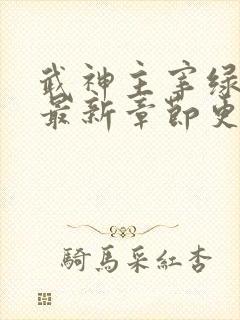 武神主宰绿
最新章节史
騎馬采紅杏